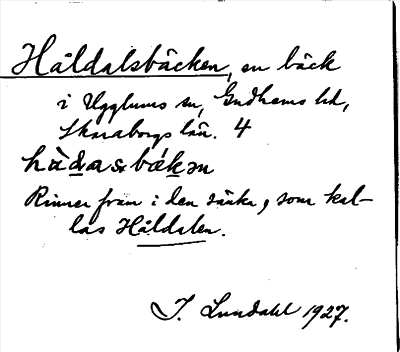 Håldalsbäcken, en bäck
i Ugglums sn, Gudhems hd,
Skaraborgs län. 4
hὰdasbækən
Rinner fram i den sänka, som kal-
las Håldalen.
I. Lundahl 1927.